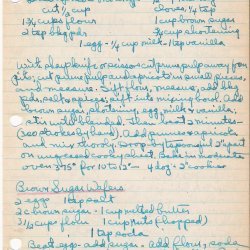 cut ½ cup Cloves ¼ tsp
1¾ cups flour 1 cup brown sugar
2 tsp bkg pd. ½ cup shortening
1 egg - ¼ cup milk - 1 tsp vanilla
With sharp knife or scissors cut prune pulp away from
pits; cut prune pulp and apricots in small pieces
and measure. Sift flour, measure, add bkg
pdr, salt, spices; sift into mixing bowl. Add
brown sugar, shortening, egg, milk, vanilla,
stir until blended, then beat 2 minutes -
(300 strokes by hand). Add prunes & apricots
and mix thoroly. Drop by teaspoonful 2" apart
on ungreased cooky sheet. Bake in moderate
oven 375° for 10 to 12 - 4 doz - 2" cookies
Brown Sugar Wafers
2 eggs 1 tsp salt
2 c brown sugar - 1 cup melted butter
3½ cups flour 1 cup nuts (chopped)
1 tsp soda
Beat egg - add sugar - add flour, soda